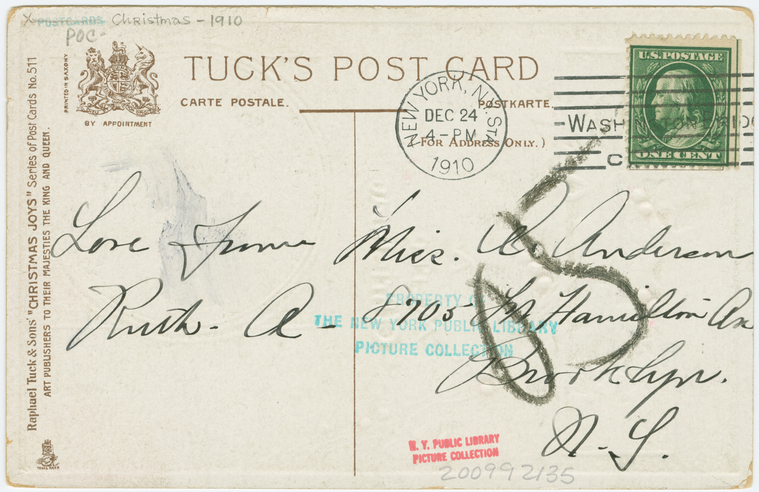 x POSTCARDS Christmas - 1910
POC-
PRINTED IN SAXONY
BY APPOINTMENT
TUCK'S POST CARD
CARTE POSTALE.
POSTKARTE
(FOR ADDRESS ONLY.)
NEW YORK, N.Y. STA
DEC 24
4-PM
1910
WASH
U.S. POSTAGE
ONE CENT
Raphael Tuck & Sons' "CHRISTMAS JOYS" Series of Post Cards No. 511
ART PUBLISHERS TO THEIR MAJESTIES THE KING AND QUEEN.
Love From
Ruth - A -
Miss. C. Anderson
8705 Ft Hamilton Ave
Brooklyn.
N.Y.
PROPERTY OF
THE NEW YORK PUBLIC LIBRARY
PICTURE COLLECTION
N. Y. PUBLIC LIBRARY
PICTURE COLLECTION
200992135